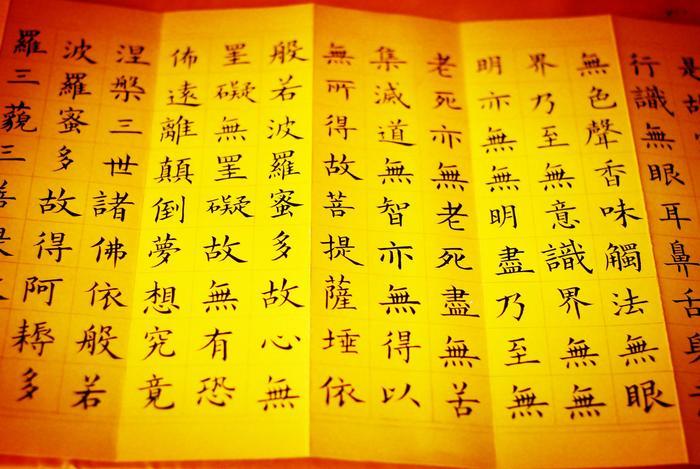 行識無眼耳鼻舌身
無色聲香味觸法無眼
界乃至無意識界無無
明亦無無明盡乃至無
老死亦無老死盡無苦
集滅道無智亦無得以
無所得故菩提薩埵依
般若波羅蜜多故心無
罣礙無罣礙故無有恐
佈遠離顛倒夢想究竟
涅槃三世諸佛依般若
波羅蜜多故得阿耨多
羅三藐三